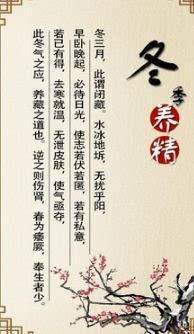 冬季养精
冬三月，此谓闭藏。水冰地坼，无扰乎阳，
早卧晚起，必待日光，使志若伏若匿，若有私意，
若已有得，去寒就温，无泄皮肤，使气亟夺，
此冬气之应，养藏之道也。逆之则伤肾，春为痿厥，奉生者少。